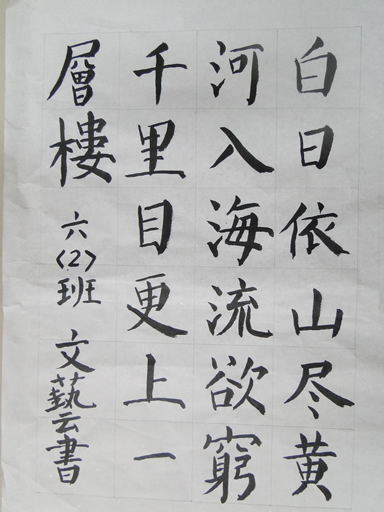 白日依山尽黄
河入海流欲窮
千里目更上一
層樓 六〈2〉班 文藝書